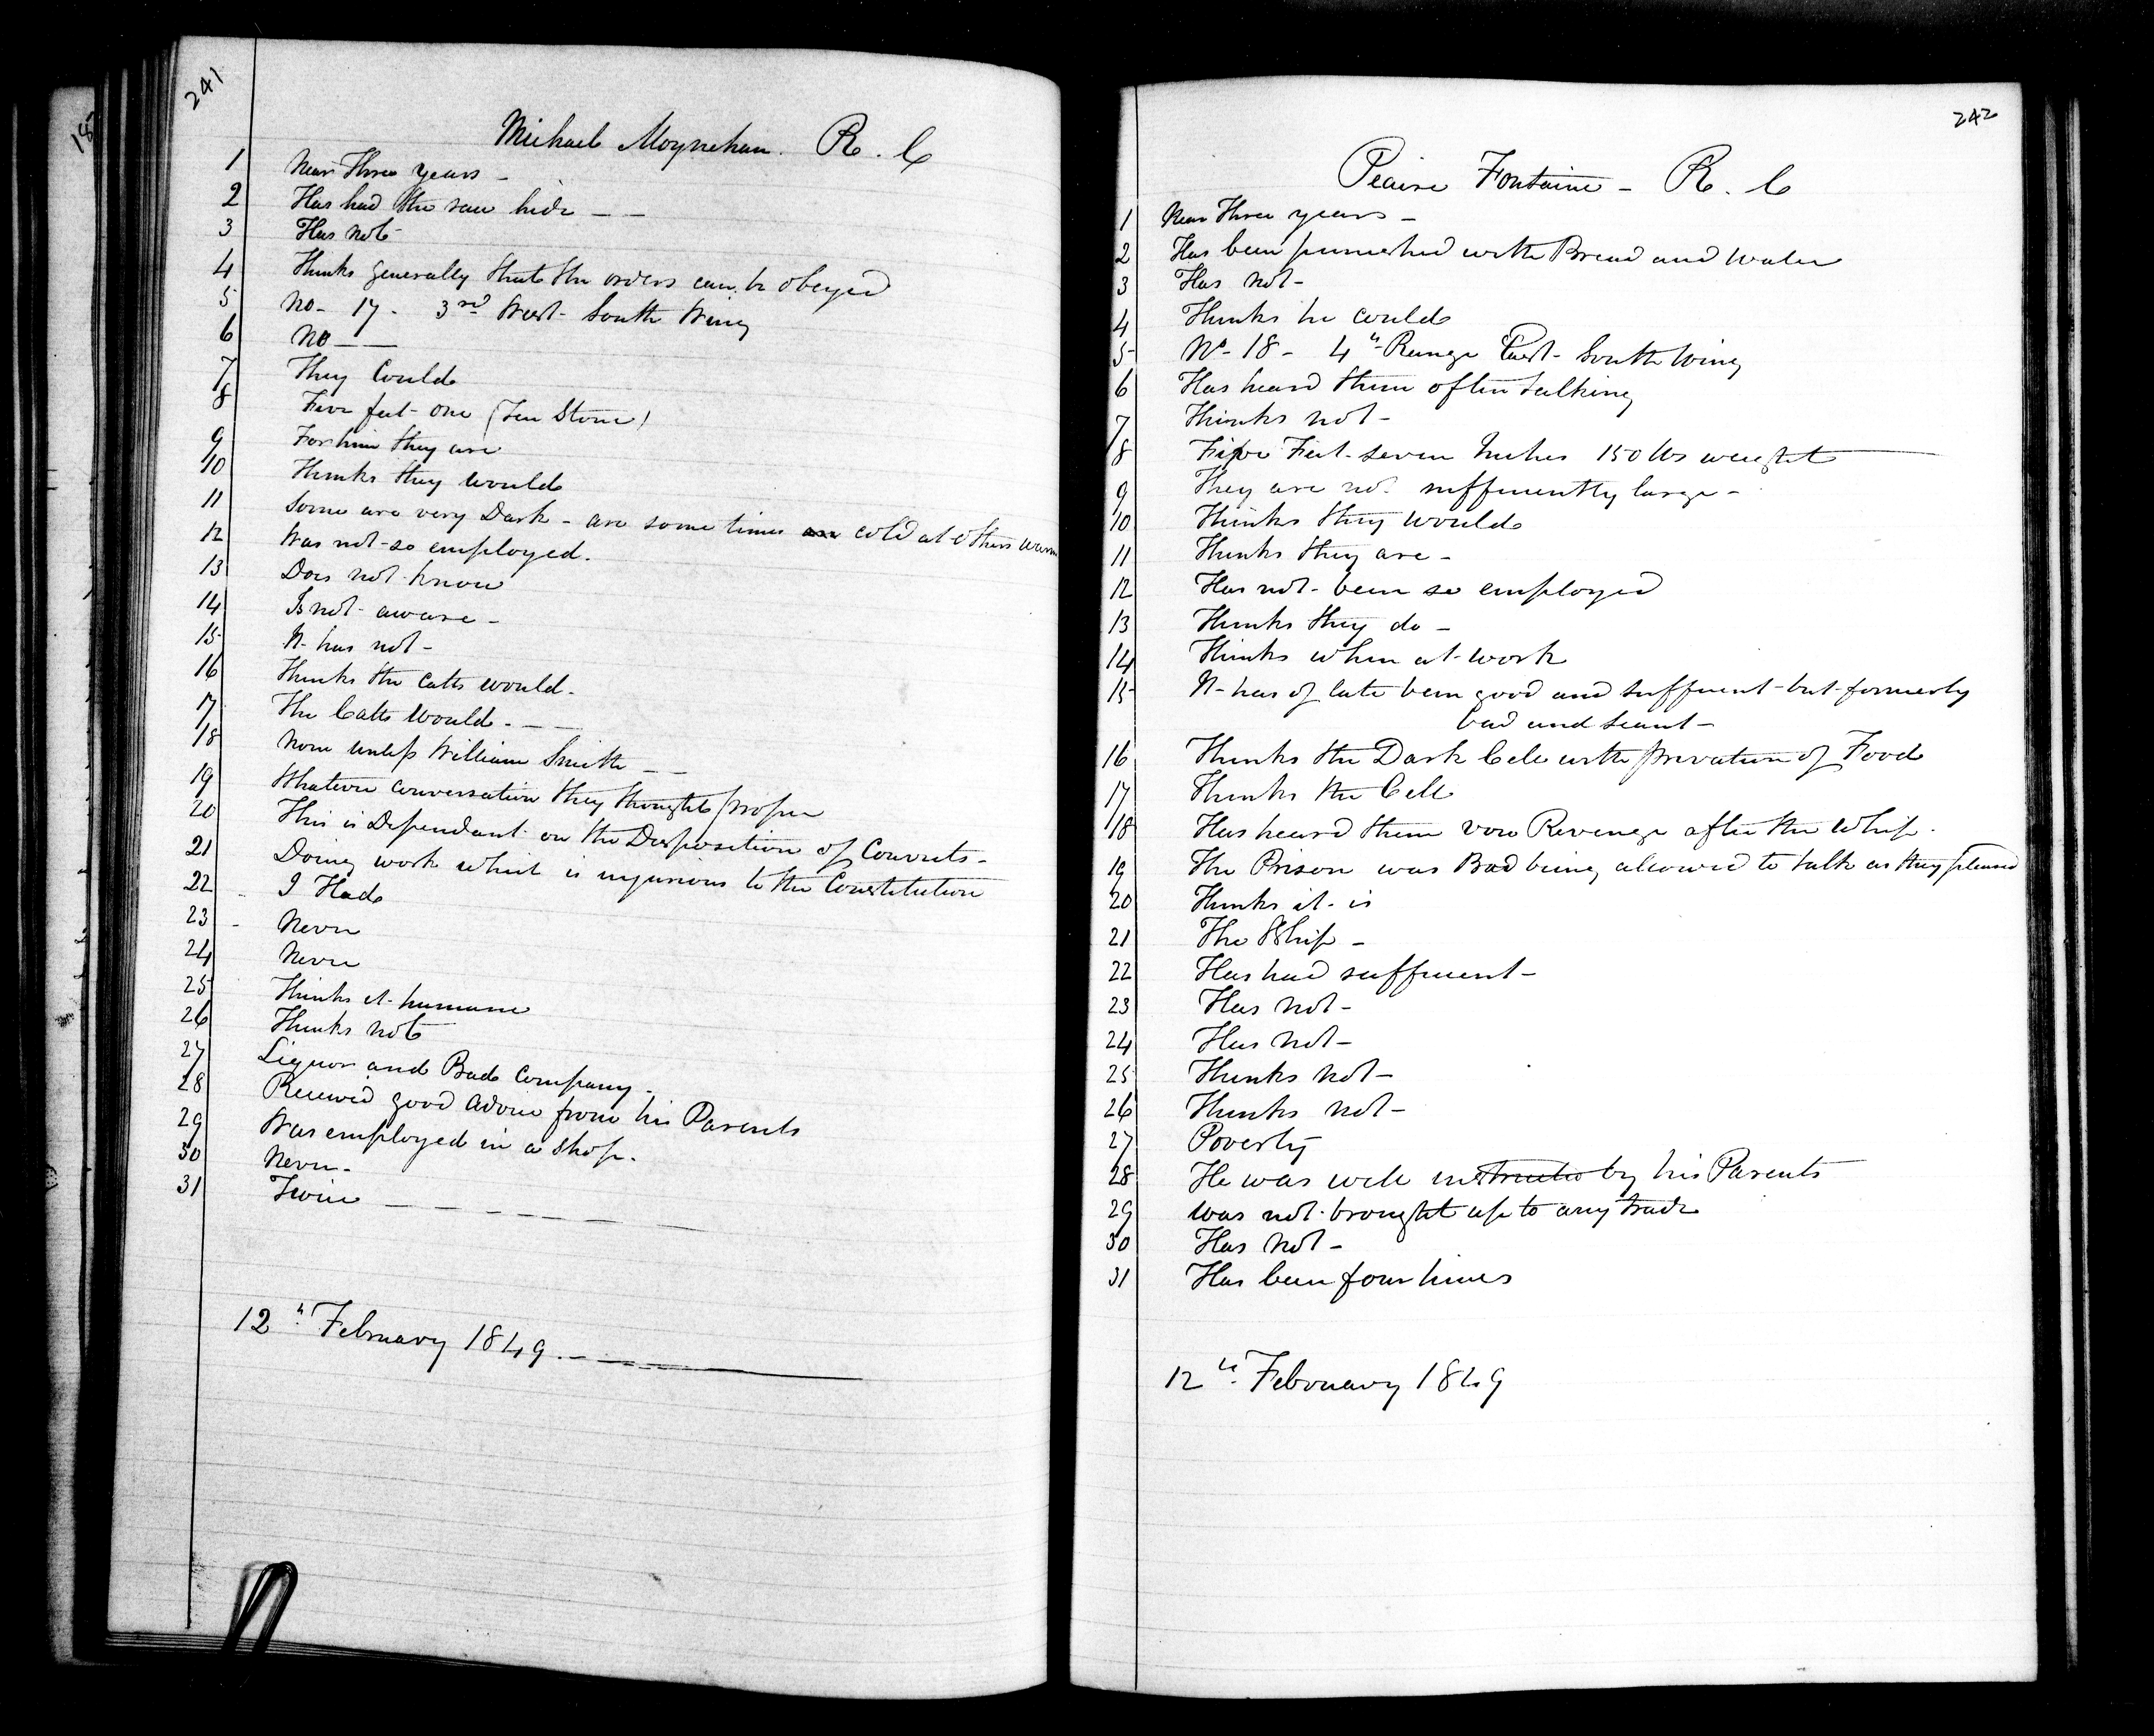 241
Michael Moynehan. R. C
1 Near Three years -
2 Has had the raw hide - -
3 Has not
4 Thinks generally that the orders can be obeyed
5 No- 17- 3rd West- South Wing
6 No - -
7 They Could
8 Five feet- one (Ten Stone)
9 For him they are
10 Thinks they would
11 Some are very Dark - are some times are cold at others warm
12 Was not so employed.
13 Does not know
14 Is not aware -
15 It has not -
16 Thinks the Catts would.
17 The Catts would. - -
18 None unless William Smith - -
19 Whatever conversation they thought proper
20 This is Dependant on the Disposition of Convicts -
21 Doing work which is injurious to the Constitution
22 I Had
23 Never
24 Never
25 Thinks it humane
26 Thinks not
27 Liquor and Bad Company -
28 Received good advice from his Parents
29 Was employed in a shop.
30 Never.
31 Twice - - - - - -
12th February 1849. - - - -
242
Peaire Fontaine - R. C
1 Near Three years -
2 Has been punished with Bread and Water
3 Has not -
4 Thinks he could
5 No- 18 - 4th Range East- South Wing
6 Has heard them often talking
7 Thinks not -
8 Five Feet- seven Inches 150 lbs weight
9 They are not sufficiently large -
10 Thinks they would
11 Thinks they are -
12 Has not been so employed
13 Thinks they do -
14 Thinks when at work
15 It has of late been good and sufficient but formerly
bad and scant -
16 Thinks the Dark Cell with privation of Food
17 Thinks the Cell
18 Has heard them vow Revenge after the Whip.
19 The Prison was Bad being allowed to talk as they pleased
20 Thinks it is
21 The Whip -
22 Has had sufficient -
23 Has not -
24 Has not -
25 Thinks not -
26 Thinks not -
27 Poverty
28 He was well instructed by his Parents
29 was not brought up to any trade
30 Has not -
31 Has been four times
12th February 1849